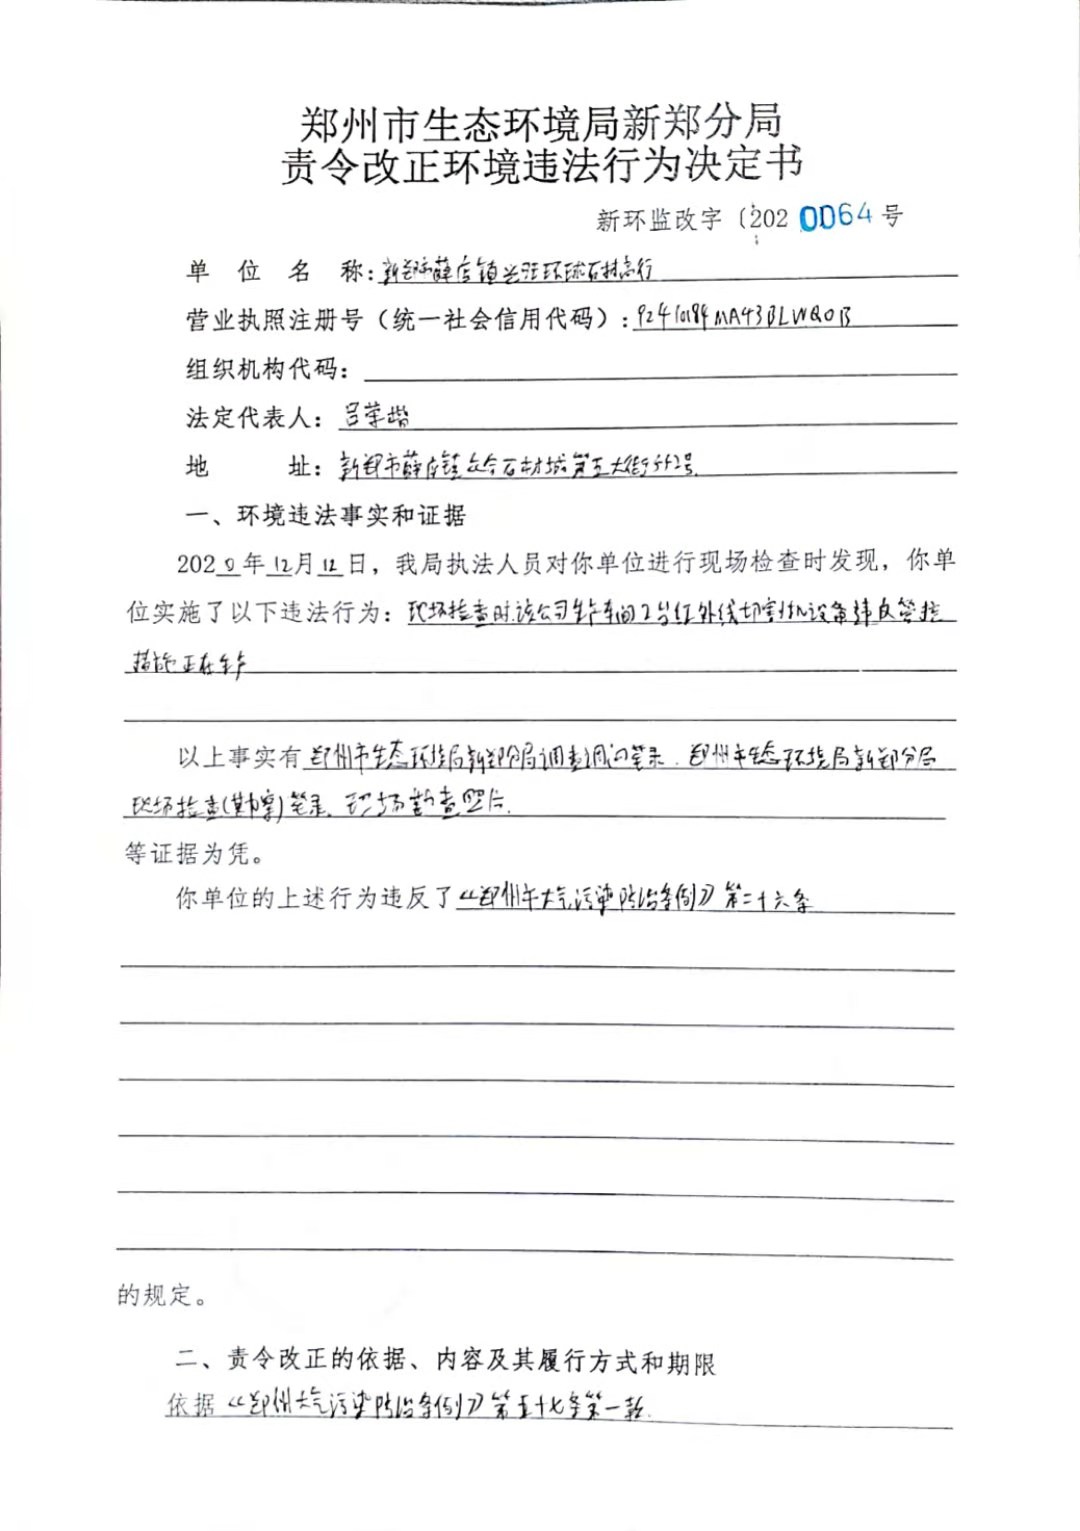 郑州市生态环境局新郑分局
责令改正环境违法行为决定书
新环监改字〔2020064号
单位名称:新郑市薛店镇兴旺环球石材商行
营业执照注册号（统一社会信用代码）:92410184MA43BLWQ0B
组织机构代码:
法定代表人:吕荣
地址:新郑市薛店镇众合石材城第五大街552号
一、环境违法事实和证据
2020年12月12日，我局执法人员对你单位进行现场检查时发现，你单
位实施了以下违法行为:现场检查时该公司生产车间2号红外线切割机设备违反管控
措施正在生产
以上事实有郑州市生态环境局新郑分局调查询问笔录、郑州市生态环境局新郑分局
现场检查(勘察)笔录、现场勘查照片.
等证据为凭。
你单位的上述行为违反了《郑州市大气污染防治条例》第二十六条
的规定。
二、责令改正的依据、内容及其履行方式和期限
依据《郑州大气污染防治条例》第五十七条第一款.